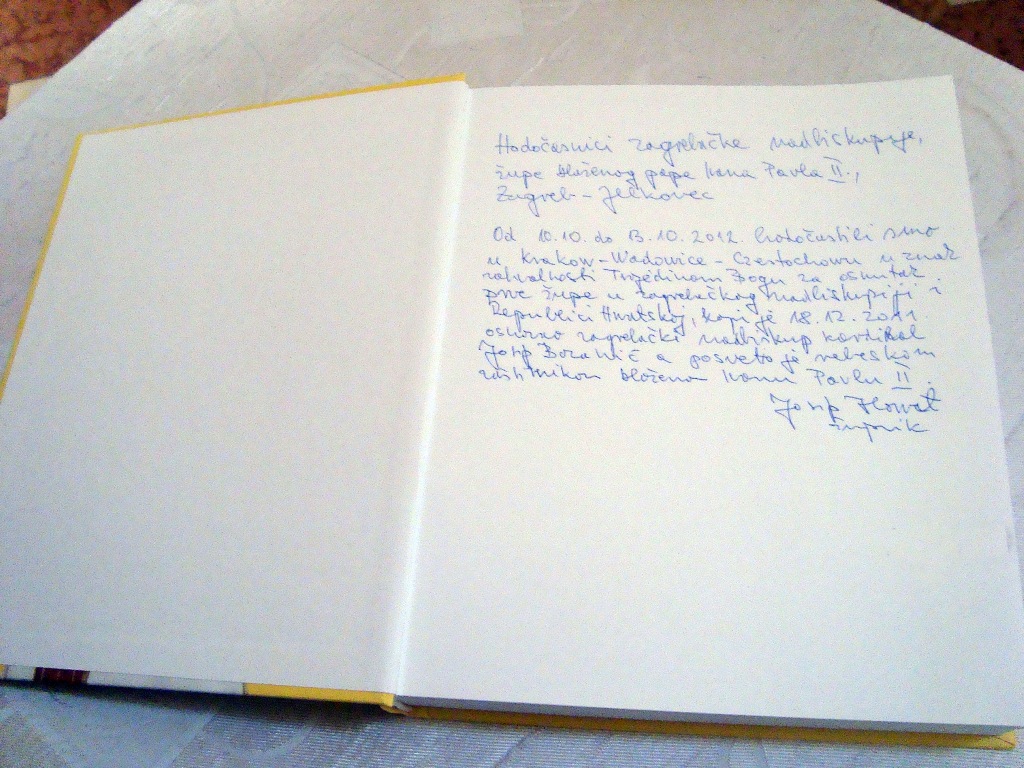 Hodočasnici zagrebačke nadbiskupije,
župe blaženog pape Ivana Pavla II.,
Zagreb - Jelkovec
Od 10.10. do 13.10.2012. hodočastili smo
u Krakow - Wadowice - Czestochowu u znak
zahvalnosti Trojedinom Bogu za osnutak
prve župe u zagrebačkoj nadbiskupiji i
Republici Hrvatskoj, koju je 18.12.2011.
osnovao zagrebački nadbiskup kardinal
Josip Bozanić a posvetio je nebeskom
zaštitnikom blaženom Ivanu Pavlu II.
Josip
župnik